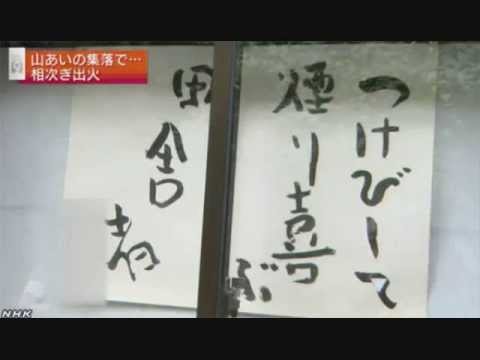 山あいの集落で…
相次ぎ出火
つけびして
煙り喜ぶ
田舎者
NHK